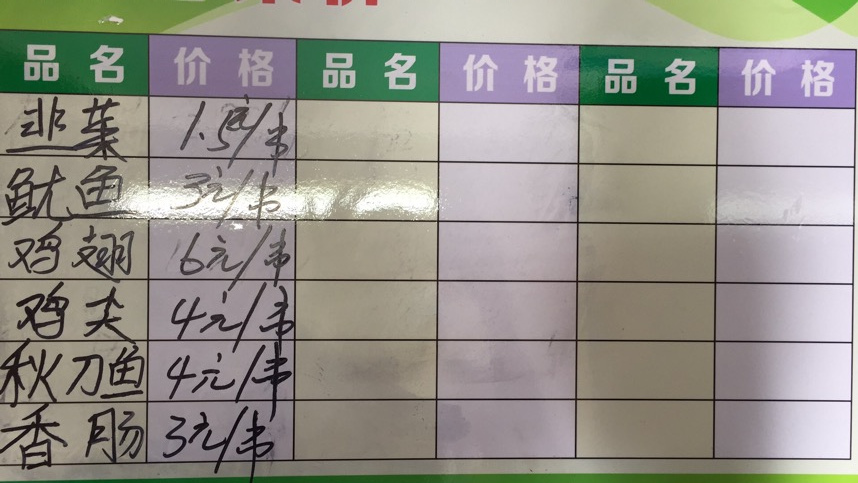 品名 价格 品名 价格 品名 价格
韭菜 1.5元/串
鱿鱼 3元/串
鸡翅 6元/串
鸡尖 4元/串
秋刀鱼 4元/串
香肠 3元/串